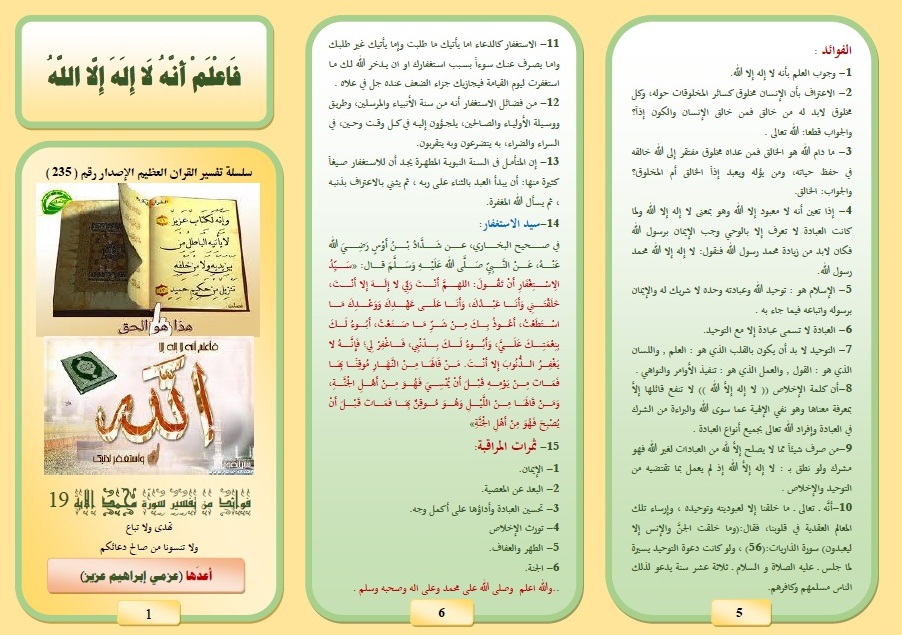 الفوائد :
1- وجوب العلم بأنه لا إله إلا الله.
2- الاعتراف بأن الإنسان مخلوق كسائر المخلوقات حوله، وكل
مخلوق لابد له من خالق فمن خالق الإنسان والكون إذاً؟
والجواب قطعا: الله تعالى .
3- ما دام الله هو الخالق فمن عداه مخلوق مفتقر إلى الله خالقه
في حفظ حياته، ومن يؤله ويعبد إذاً الخالق أم المخلوق؟
والجواب: الخالق.
4- إذا تعين أنه لا معبود إلا الله وهو بمعنى لا إله إلا الله ولما
كانت العبادة لا تعرف إلا بالوحي وجب الإيمان برسول الله
فكان لابد من زيادة محمد رسول الله فنقول: لا إله إلا الله محمد
رسول الله.
5- الإسلام هو : توحيد الله وعبادته وحده لا شريك له والإيمان
برسوله واتباعه فيما جاء به .
6- العبادة لا تسمى عبادة إلا مع التوحيد.
7- التوحيد لا بد أن يكون بالقلب الذي هو : العلم , واللسان
الذي هو : القول , والعمل الذي هو : تنفيذ الأوامر والنواهي .
8-أن كلمة الإخلاص (( لا إله إلا الله )) لا تنفع قائلها إلاَّ
بمعرفة معناها وهو نفي الإلهية عما سوى الله والبراءة من الشرك
في العبادة وإفراد الله تعالى بجميع أنواع العبادة .
9-من صرف شيئاً مما لا يصلح إلاَّ لله من العبادات لغير الله فهو
مشرك ولو نطق بـ : لا إله إلاَّ الله إذ لم يعمل بما تقتضيه من
التوحيد والإخلاص .
10-أنَّه . تعالى . ما خلقنا إلا لعبوديته وتوحيده ، وإرساء تلك
المعالم العقدية في قلوبنا، فقال:(وما خلقت الجنَّ والإنس إلا
ليعبدون) سورة الذاريات:(56) ، ولو كانت دعوة التوحيد يسيرة
لما جلس . عليه الصلاة و السلام . ثلاثة عشر سنة يدعو لذلك
الناس مسلمهم وكافرهم.
5
11- الاستغفار كالدعاء اما يأتيك ما طلبت وإما يأتيك غير طلبك
واما يصرف عنك سوءاً بسبب استغفارك او ان يدخر الله لك ما
استغفرت ليوم القيامة فيجازيك جزاء الضعف عنده جل في علاه .
12- من فضائل الاستغفار أنه من سنة الأنبياء والمرسلين، وطريق
ووسيلة الأولياء والصالحين، يلجؤون إليه في كل وقت وحين، في
السراء والضراء، به يتضرعون وبه يتقربون.
13- إن المتأمل في السنة النبوية المطهرة يجد أن للاستغفار صيغاً
كثيرة منها: أن يبدأ العبد بالثناء على ربه ، ثم يثني بالاعتراف بذنبه
، ثم يسأل الله المغفرة.
14-سيد الاستغفار:
في صحيح البخاري، عن شَدَّادُ بْنُ أَوْسٍ رَضِيَ اللَّهُ
عَنْهُ، عَنْ النَّبِيِّ صَلَّى اللَّهُ عَلَيْهِ وَسَلَّمَ قال: «سَيِّدُ
الِاسْتِغْفَارِ أَنْ تَقُولَ: اللهمَّ أَنْتَ رَبِّي لَا إِلَهَ إِلَّا أَنْتَ،
خَلَقْتَنِي وَأَنَا عَبْدُكَ، وَأَنَا عَلَى عَهْدِكَ وَوَعْدِكَ مَا
اسْتَطَعْتُ، أَعُوذُ بِكَ مِنْ شَرِّ مَا صَنَعْتُ، أَبُوءُ لَكَ
بِنِعْمَتِكَ عَلَيَّ، وَأَبُوءُ لَكَ بِذَنْبِي، فَاغْفِرْ لِي؛ فَإِنَّهُ لَا
يَغْفِرُ الذُّنُوبَ إِلَّا أَنْتَ. مَنْ قَالَهَا مِنْ النَّهَارِ مُوقِنًا بِهَا
فَمَاتَ مِنْ يَوْمِهِ قَبْلَ أَنْ يُمْسِيَ فَهُوَ مِنْ أَهْلِ الْجَنَّةِ،
وَمَنْ قَالَهَا مِنْ اللَّيْلِ وَهُوَ مُوقِنٌ بِهَا فَمَاتَ قَبْلَ أَنْ
يُصْبِحَ فَهُوَ مِنْ أَهْلِ الْجَنَّةِ»
15- ثمرات المراقبة:
1- الإيمان.
2- البعد عن المعصية.
3- تحسين العبادة وأداؤها على أكمل وجه.
4- تورث الإخلاص
5- الطهر والعفاف.
6- الجنة.
..والله اعلم وصلى الله على محمد وعلى اله وصحبه وسلم .
6
فَاعْلَمْ أَنَّهُ لَا إِلَهَ إِلَّا اللَّهُ
سلسلة تفسير القرآن العظيم الإصدار رقم ( 235 )
وإنه لكتاب عزيز
لا يأتيه الباطل من
بين يديه ولا من خلفه
تنزيل من حكيم حميد
هذا هو الحق
فاعلم أنه لا إله إلا
الله
واستغفر لذنبك
فوائد من تفسير سورة محمد الآية 19
تهدى ولا تباع
ولا تنسونا من صالح دعائكم
أعدّها (عزمي إبراهيم عزيز)
1